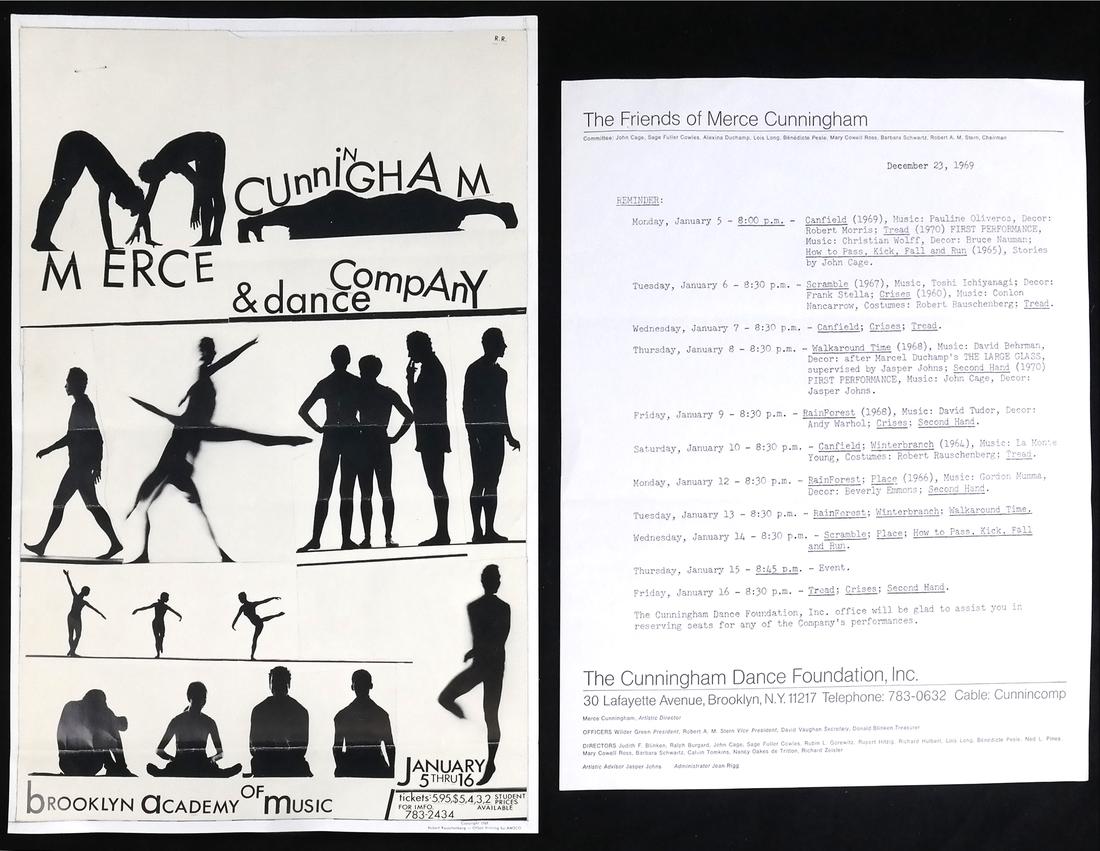 R.R.
CUnniNGHAM
MERCE
& dance CompAnY
JANUARY
5 THRU 16
bROOKLYN aCADEMY OF mUSIC
tickets: 5.95, $5, 4, 3, 2 STUDENT PRICES AVAILABLE
FOR IMFO.
783-2434
Copyright 1969
Robert Rauschenberg — Offset Printing by AMSCO
The Friends of Merce Cunningham
Committee: John Cage, Sage Fuller Cowles, Alexina Duchamp, Lois Long, Bénédicte Pesle, Mary Cowell Ross, Barbara Schwartz, Robert A. M. Stern, Chairman
December 23, 1969
REMINDER:
Monday, January 5 - 8:00 p.m. - Canfield (1969), Music: Pauline Oliveros, Decor:
Robert Morris; Tread (1970) FIRST PERFORMANCE,
Music: Christian Wolff, Decor: Bruce Nauman;
How to Pass, Kick, Fall and Run (1965), Stories
by John Cage.
Tuesday, January 6 - 8:30 p.m. - Scramble (1967), Music, Toshi Ichiyanagi; Decor:
Frank Stella; Crises (1960), Music: Conlon
Nancarrow, Costumes: Robert Rauschenberg; Tread.
Wednesday, January 7 - 8:30 p.m. - Canfield; Crises; Tread.
Thursday, January 8 - 8:30 p.m. - Walkaround Time (1968), Music: David Behrman,
Decor: after Marcel Duchamp's THE LARGE GLASS,
supervised by Jasper Johns; Second Hand (1970)
FIRST PERFORMANCE, Music: John Cage, Decor:
Jasper Johns.
Friday, January 9 - 8:30 p.m. - RainForest (1968), Music: David Tudor, Decor:
Andy Warhol; Crises; Second Hand.
Saturday, January 10 - 8:30 p.m. - Canfield; Winterbranch (1964), Music: La Monte
Young, Costumes: Robert Rauschenberg; Tread.
Monday, January 12 - 8:30 p.m. - RainForest; Place (1966), Music: Gordon Mumma,
Decor: Beverly Emmons; Second Hand.
Tuesday, January 13 - 8:30 p.m. - RainForest; Winterbranch; Walkaround Time.
Wednesday, January 14 - 8:30 p.m. - Scramble; Place; How to Pass, Kick, Fall
and Run.
Thursday, January 15 - 8:45 p.m. - Event.
Friday, January 16 - 8:30 p.m. - Tread; Crises; Second Hand.
The Cunningham Dance Foundation, Inc. office will be glad to assist you in
reserving seats for any of the Company's performances.
The Cunningham Dance Foundation, Inc.
30 Lafayette Avenue, Brooklyn, N.Y. 11217 Telephone: 783-0632 Cable: Cunnincomp
Merce Cunningham, Artistic Director
OFFICERS Wilder Green President, Robert A. M. Stern Vice President, David Vaughan Secretary, Donald Blinken Treasurer
DIRECTORS Judith F. Blinken, Ralph Burgard, John Cage, Sage Fuller Cowles, Rubin L. Gorewitz, Rupert Hitzig, Richard Hulbert, Lois Long, Bénédicte Pesle, Ned L. Pines
Mary Cowell Ross, Barbara Schwartz, Calvin Tomkins, Nancy Oakes de Tritton, Richard Zeisler
Artistic Advisor Jasper Johns Administrator Jean Rigg